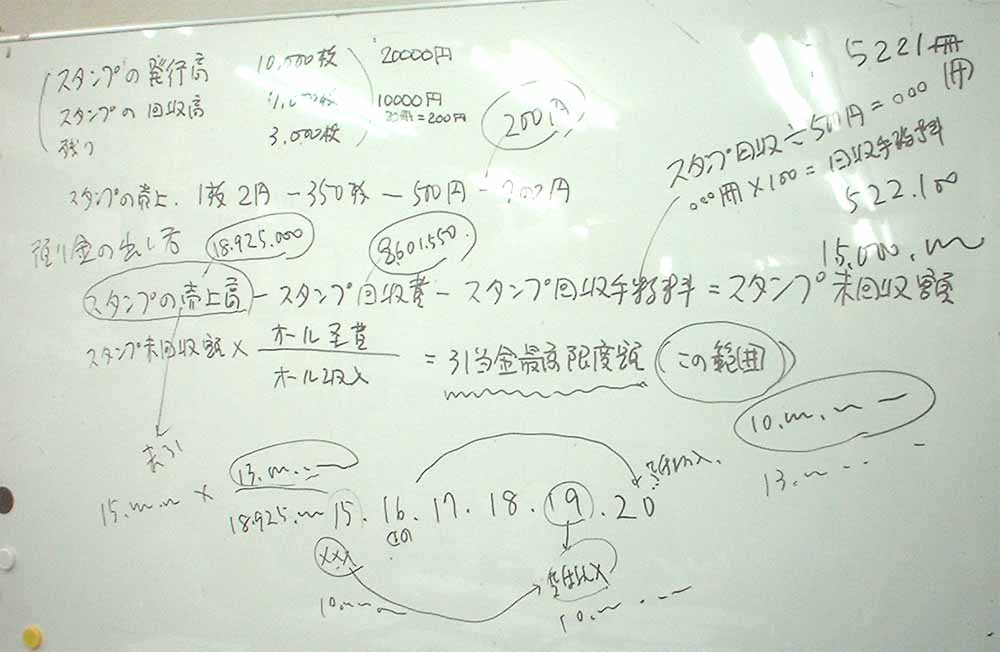 スタンプの発行高 10,000枚 20000円
スタンプの回収高 10000円
20冊=200円
残り 3,000枚
200円
5221冊
スタンプ回収÷500円=000(冊)
000冊×100=回収手数料
522.100
スタンプの売上. 1枚2円-350枚-500円-200円
預り金の出し方 18.925.000 8601.550.
15.000.
スタンプの売上高-スタンプ回収費-スタンプ回収手数料=スタンプ未回収額
スタンプ未回収額×オール経費
オール収入
=引当金最高限度額(この範囲)
10.
13.
15. × 13.
18.925. 15.16.17.18.19.20
この
雑収入.
×××
雑収入
10.
10.